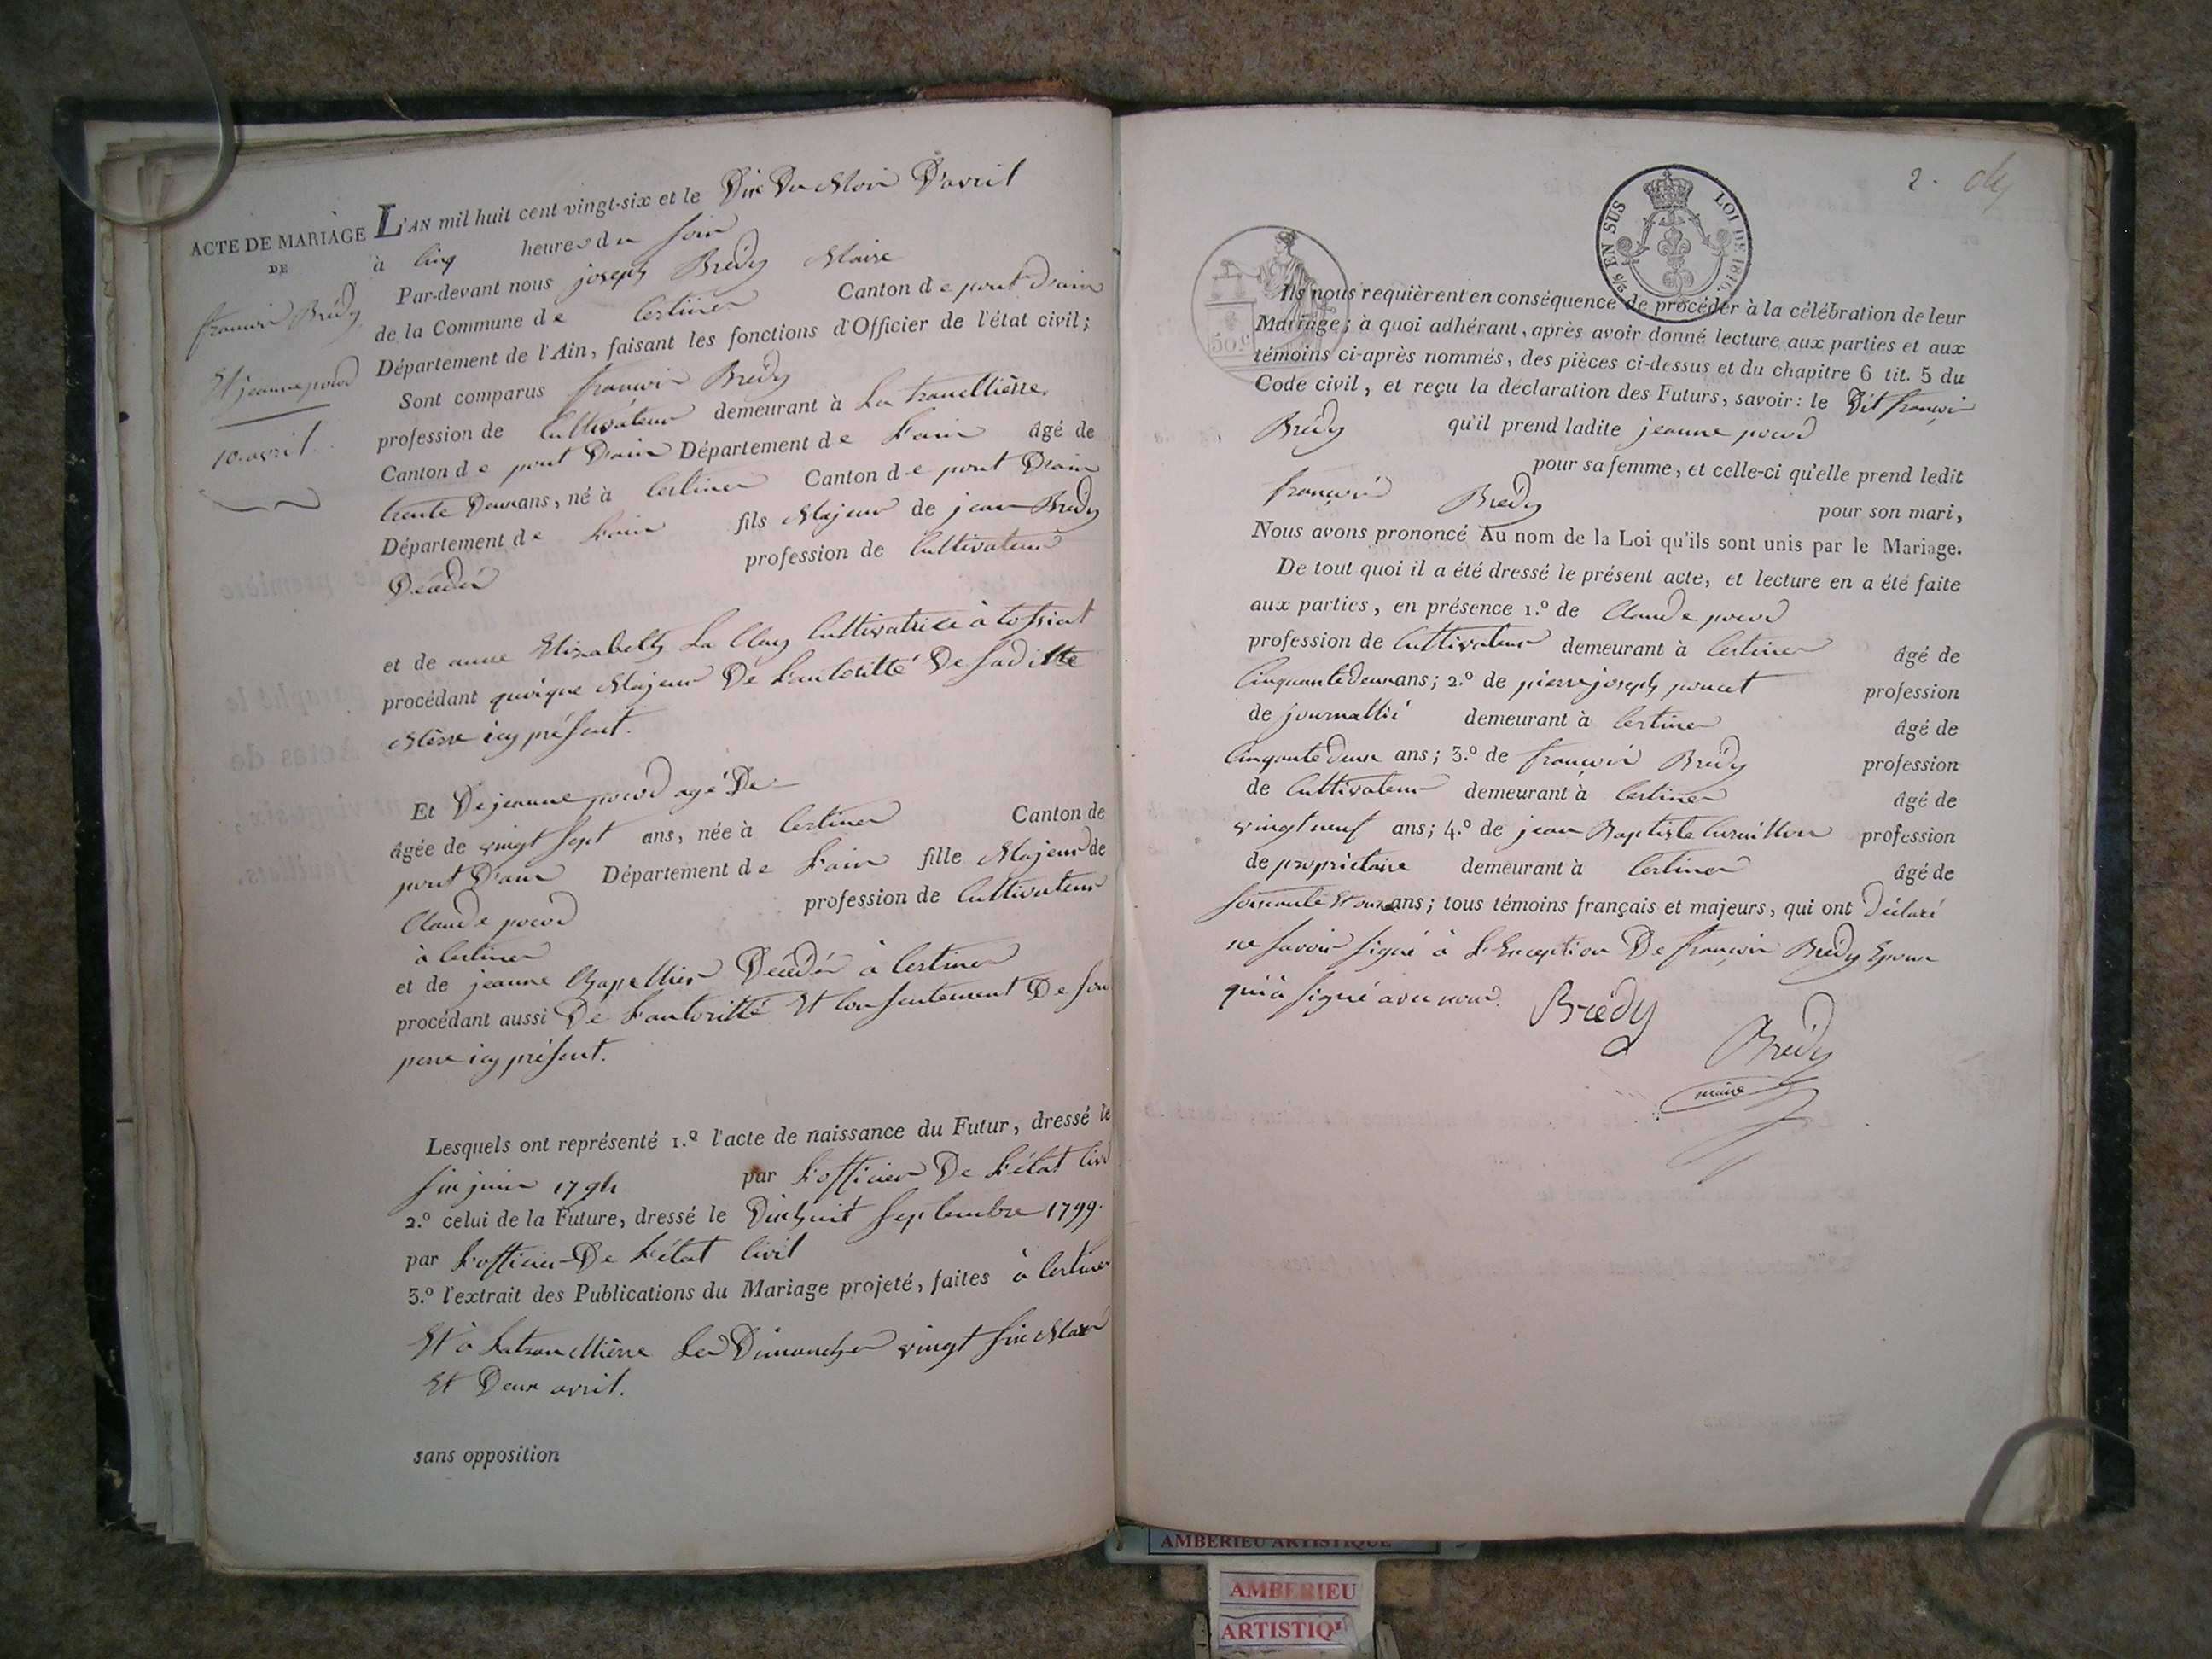 ACTE DE MARIAGE
DE
françois Brédy
Et jeanne pocod
10. avril.
L'AN mil huit cent vingt-six et le Dix Du Mois D'avril
à cinq heures du soir
Par-devant nous joseph Brédy Maire
de la Commune de Certines Canton de pont D'ain
Département de l'Ain, faisant les fonctions d'Officier de l'état civil;
Sont comparus françois Brédy
profession de Cultivateur demeurant à La tranclliere
Canton de pont D'ain Département de L'ain âgé de
trente Deux ans, né à Certines Canton de pont D'ain
Département de L'ain fils Majeur de jean Brédy
profession de Cultivateur
Décédé
et de anne Elisabeth La Clay Cultivatrice à tossiat
procédant quoique Majeur De L'autoritté De saditte
Mère icy présent.
Et De jeanne pocod agé De
âgée de vingt sept ans, née à Certines Canton de
pont D'ain Département de L'ain fille Majeur de
Claude pocod profession de Cultivateur
à Certines
et de jeanne Chapellier Décédé à Certines
procédant aussi De L'autoritté Et Consentement De son
perre icy présent.
Lesquels ont représenté 1.º l'acte de naissance du Futur, dressé le
six juin 1794 par L'officier De L'état civil
2.º celui de la Future, dressé le Dixhuit septembre 1799.
par L'officier De L'état Civil
3.º l'extrait des Publications du Mariage projeté, faites à Certines
Et à Latranclliere Les Dimanches vingt six Mars
Et Deux avril.
sans opposition
2.
5/6 EN SUS LOI DE 1816.
50.c
Ils nous requièrent en conséquence de procéder à la célébration de leur
Mariage; à quoi adhérant, après avoir donné lecture aux parties et aux
témoins ci-après nommés, des pièces ci-dessus et du chapitre 6 tit. 5 du
Code civil, et reçu la déclaration des Futurs, savoir: le Dit françois
Brédy qu'il prend ladite jeanne pocod
pour sa femme, et celle-ci qu'elle prend ledit
françois Brédy pour son mari,
Nous avons prononcé Au nom de la Loi qu'ils sont unis par le Mariage.
De tout quoi il a été dressé le présent acte, et lecture en a été faite
aux parties, en présence 1.º de Claude pocod
profession de Cultivateur demeurant à Certines âgé de
Cinquante deux ans; 2.º de pierre joseph poncet profession
de journallié demeurant à Certines âgé de
Cinqante Deux ans; 3.º de françois Brédy profession
de Cultivateur demeurant à Certines âgé de
vingt neuf ans; 4.º de jean Baptiste profession
de propriétaire demeurant à Certines âgé de
soixante Et onze ans; tous témoins français et majeurs, qui ont déclaré
ne savoir signé à L'Exception De françois Brédy Epoux
qui à signé avec nous. Brédy
Brédy
maire
AMBERIEU ARTISTIQUE
AMBERIEU
ARTISTIQ